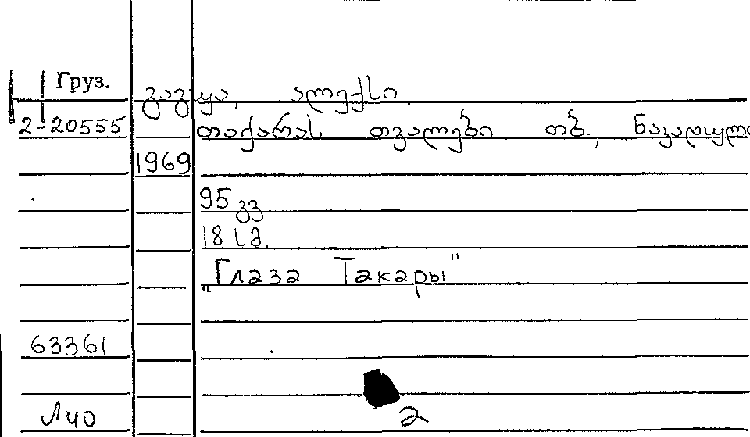 Груз.
გაგუა, ალექსი
2-20555 თაქარას თვალები თბ., ნაკადული
1969
95 გვ
18 სმ.
„Глаза Такары"
63361
2